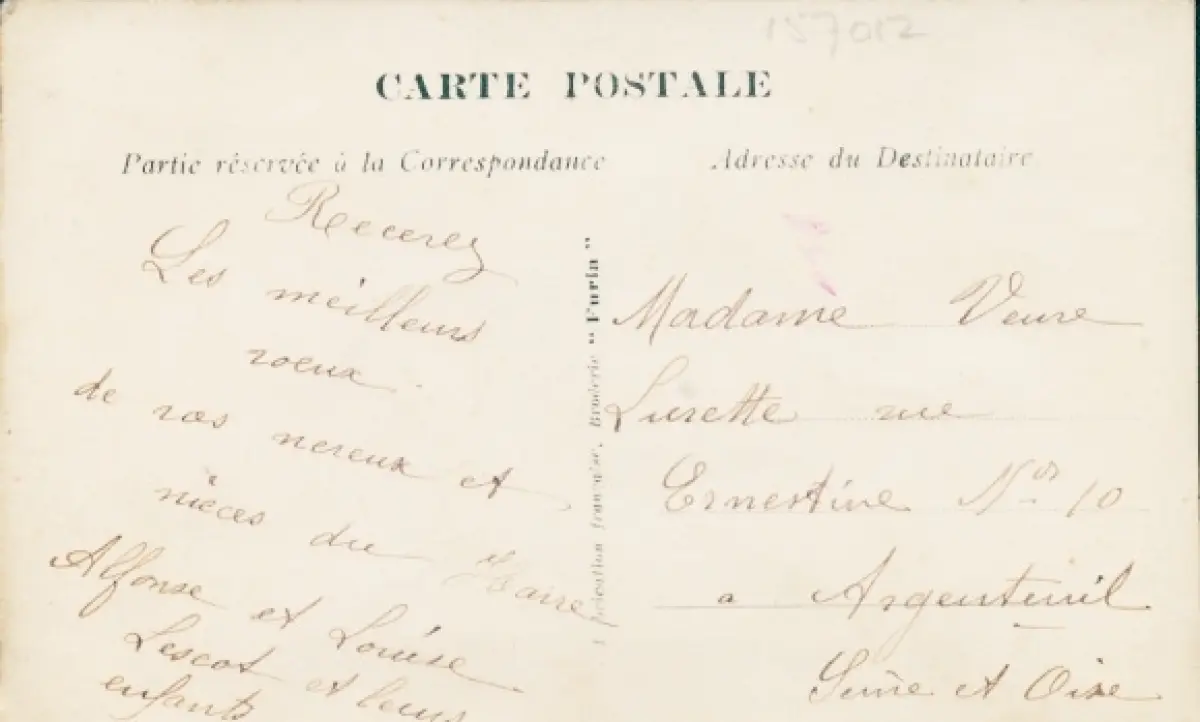 157012
CARTE POSTALE
Partie réservée à la Correspondance
Adresse du Destinataire
Recerez
Les meilleurs
voeux
de vos neveux et
nièces du
Alfonse et Louise
Lescot et leurs
enfants
Fabrication française, Broderie " Furia "
Madame Veuve
Lurette rue
Ernestine Nos 10
a Argenteuil
Seine et Oise